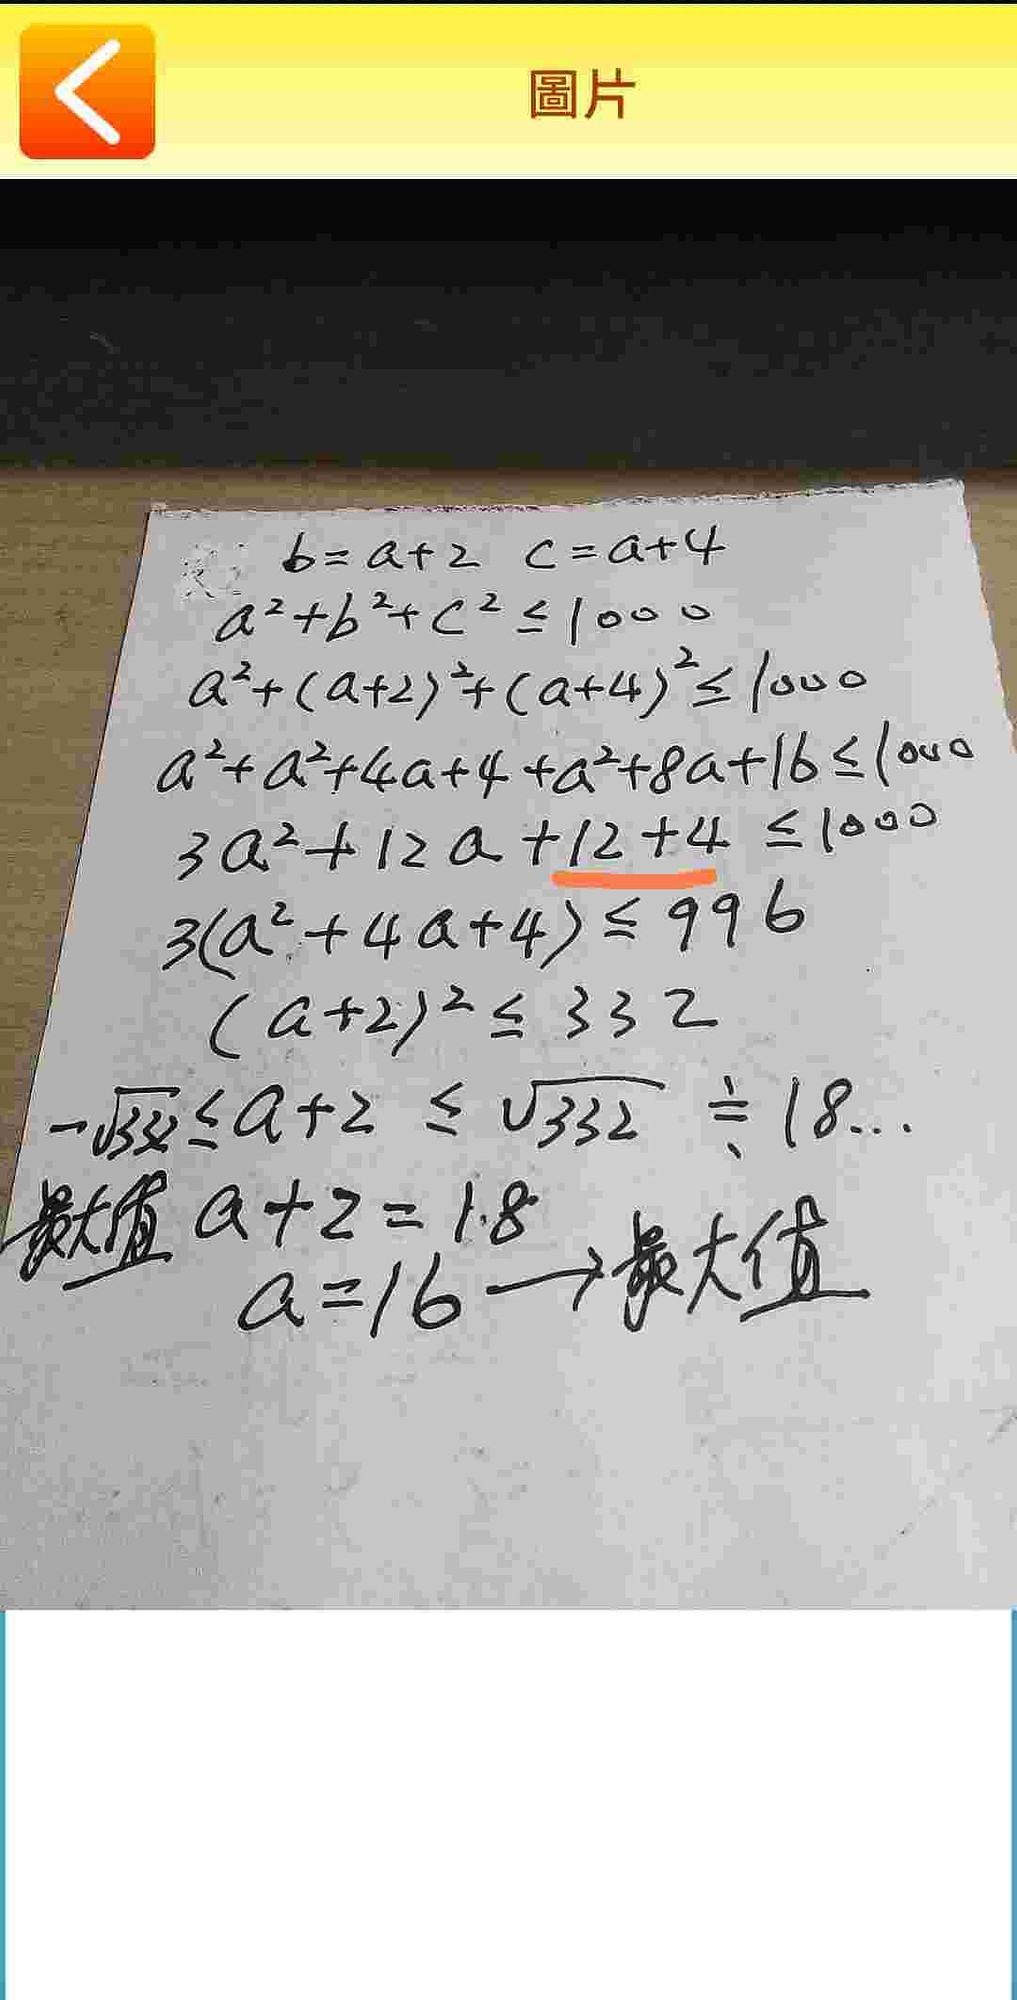 圖片
b=a+2 c=a+4
a²+b²+c²≤1000
a²+(a+2)²+(a+4)²≤1000
a²+a²+4a+4+a²+8a+16≤1000
3a²+12a+12+4≤1000
3(a²+4a+4)≤996
(a+2)²≤332
-√332≤a+2≤√332≒18...
最大值 a+2=18
a=16→最大值